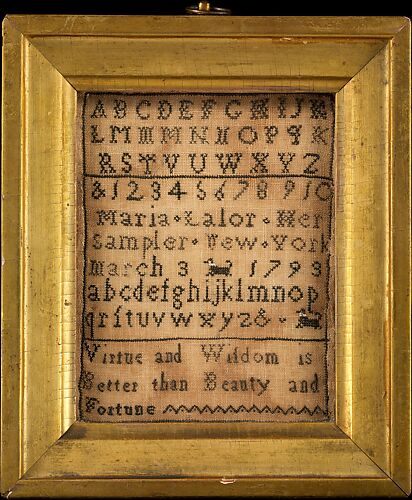 ABCDEFGHIJK
LMMMNNOPQ
RSTVUWXYZ
&12345678910
Maria Lalor Her
Sampler New York
March 3 1793
abcdefghijklmnop
qrſtuvwxyz&
Virtue and Wiſdom is
Better than Beauty and
Fortune